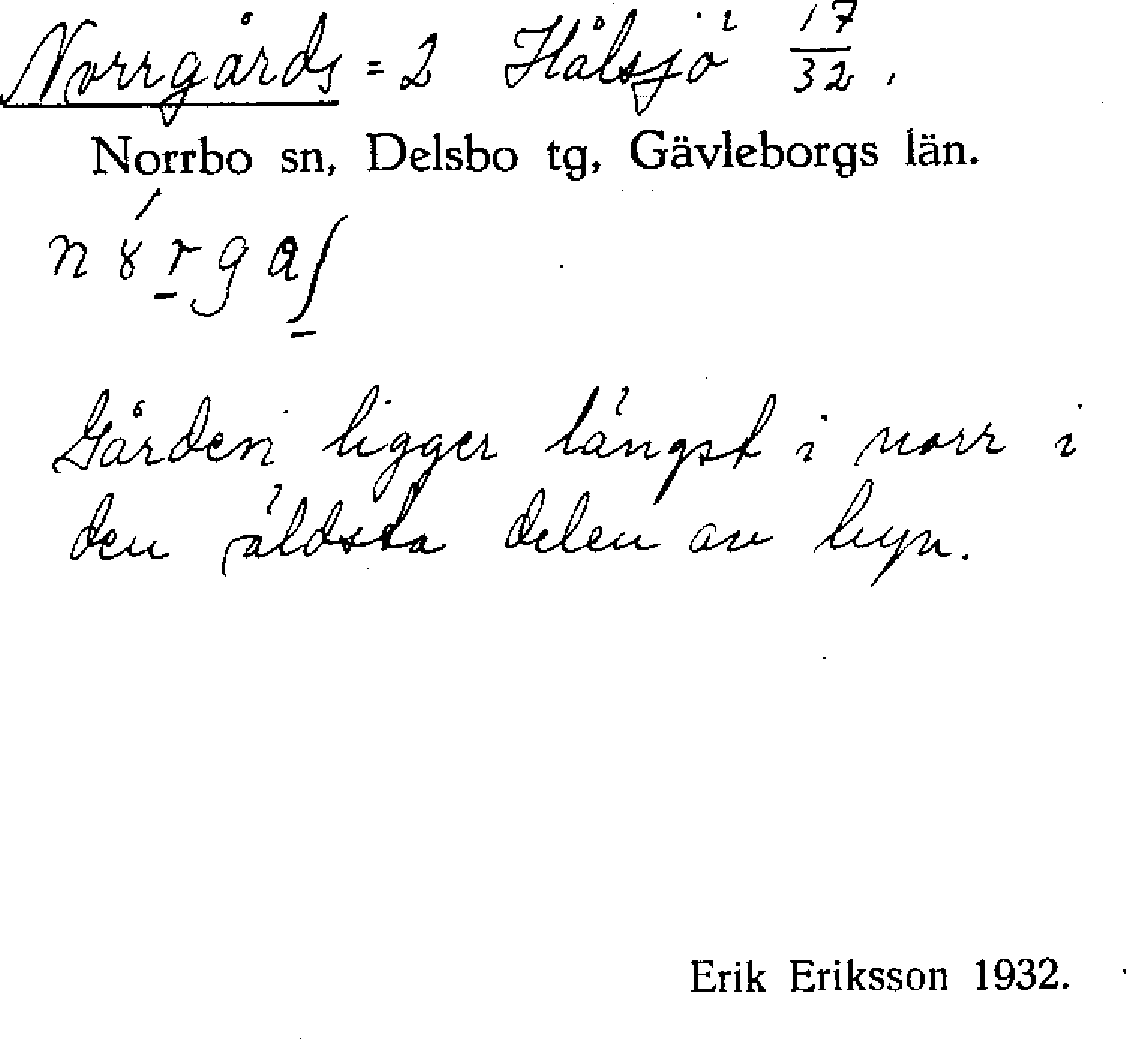 Norrgårds = 2 Hålsjö 17/32.
Norrbo sn, Delsbo tg, Gävleborgs län.
nɤ́r̲gaʃ̲
Gården ligger längst i norr i
den äldsta delen av byn.
Erik Eriksson 1932.